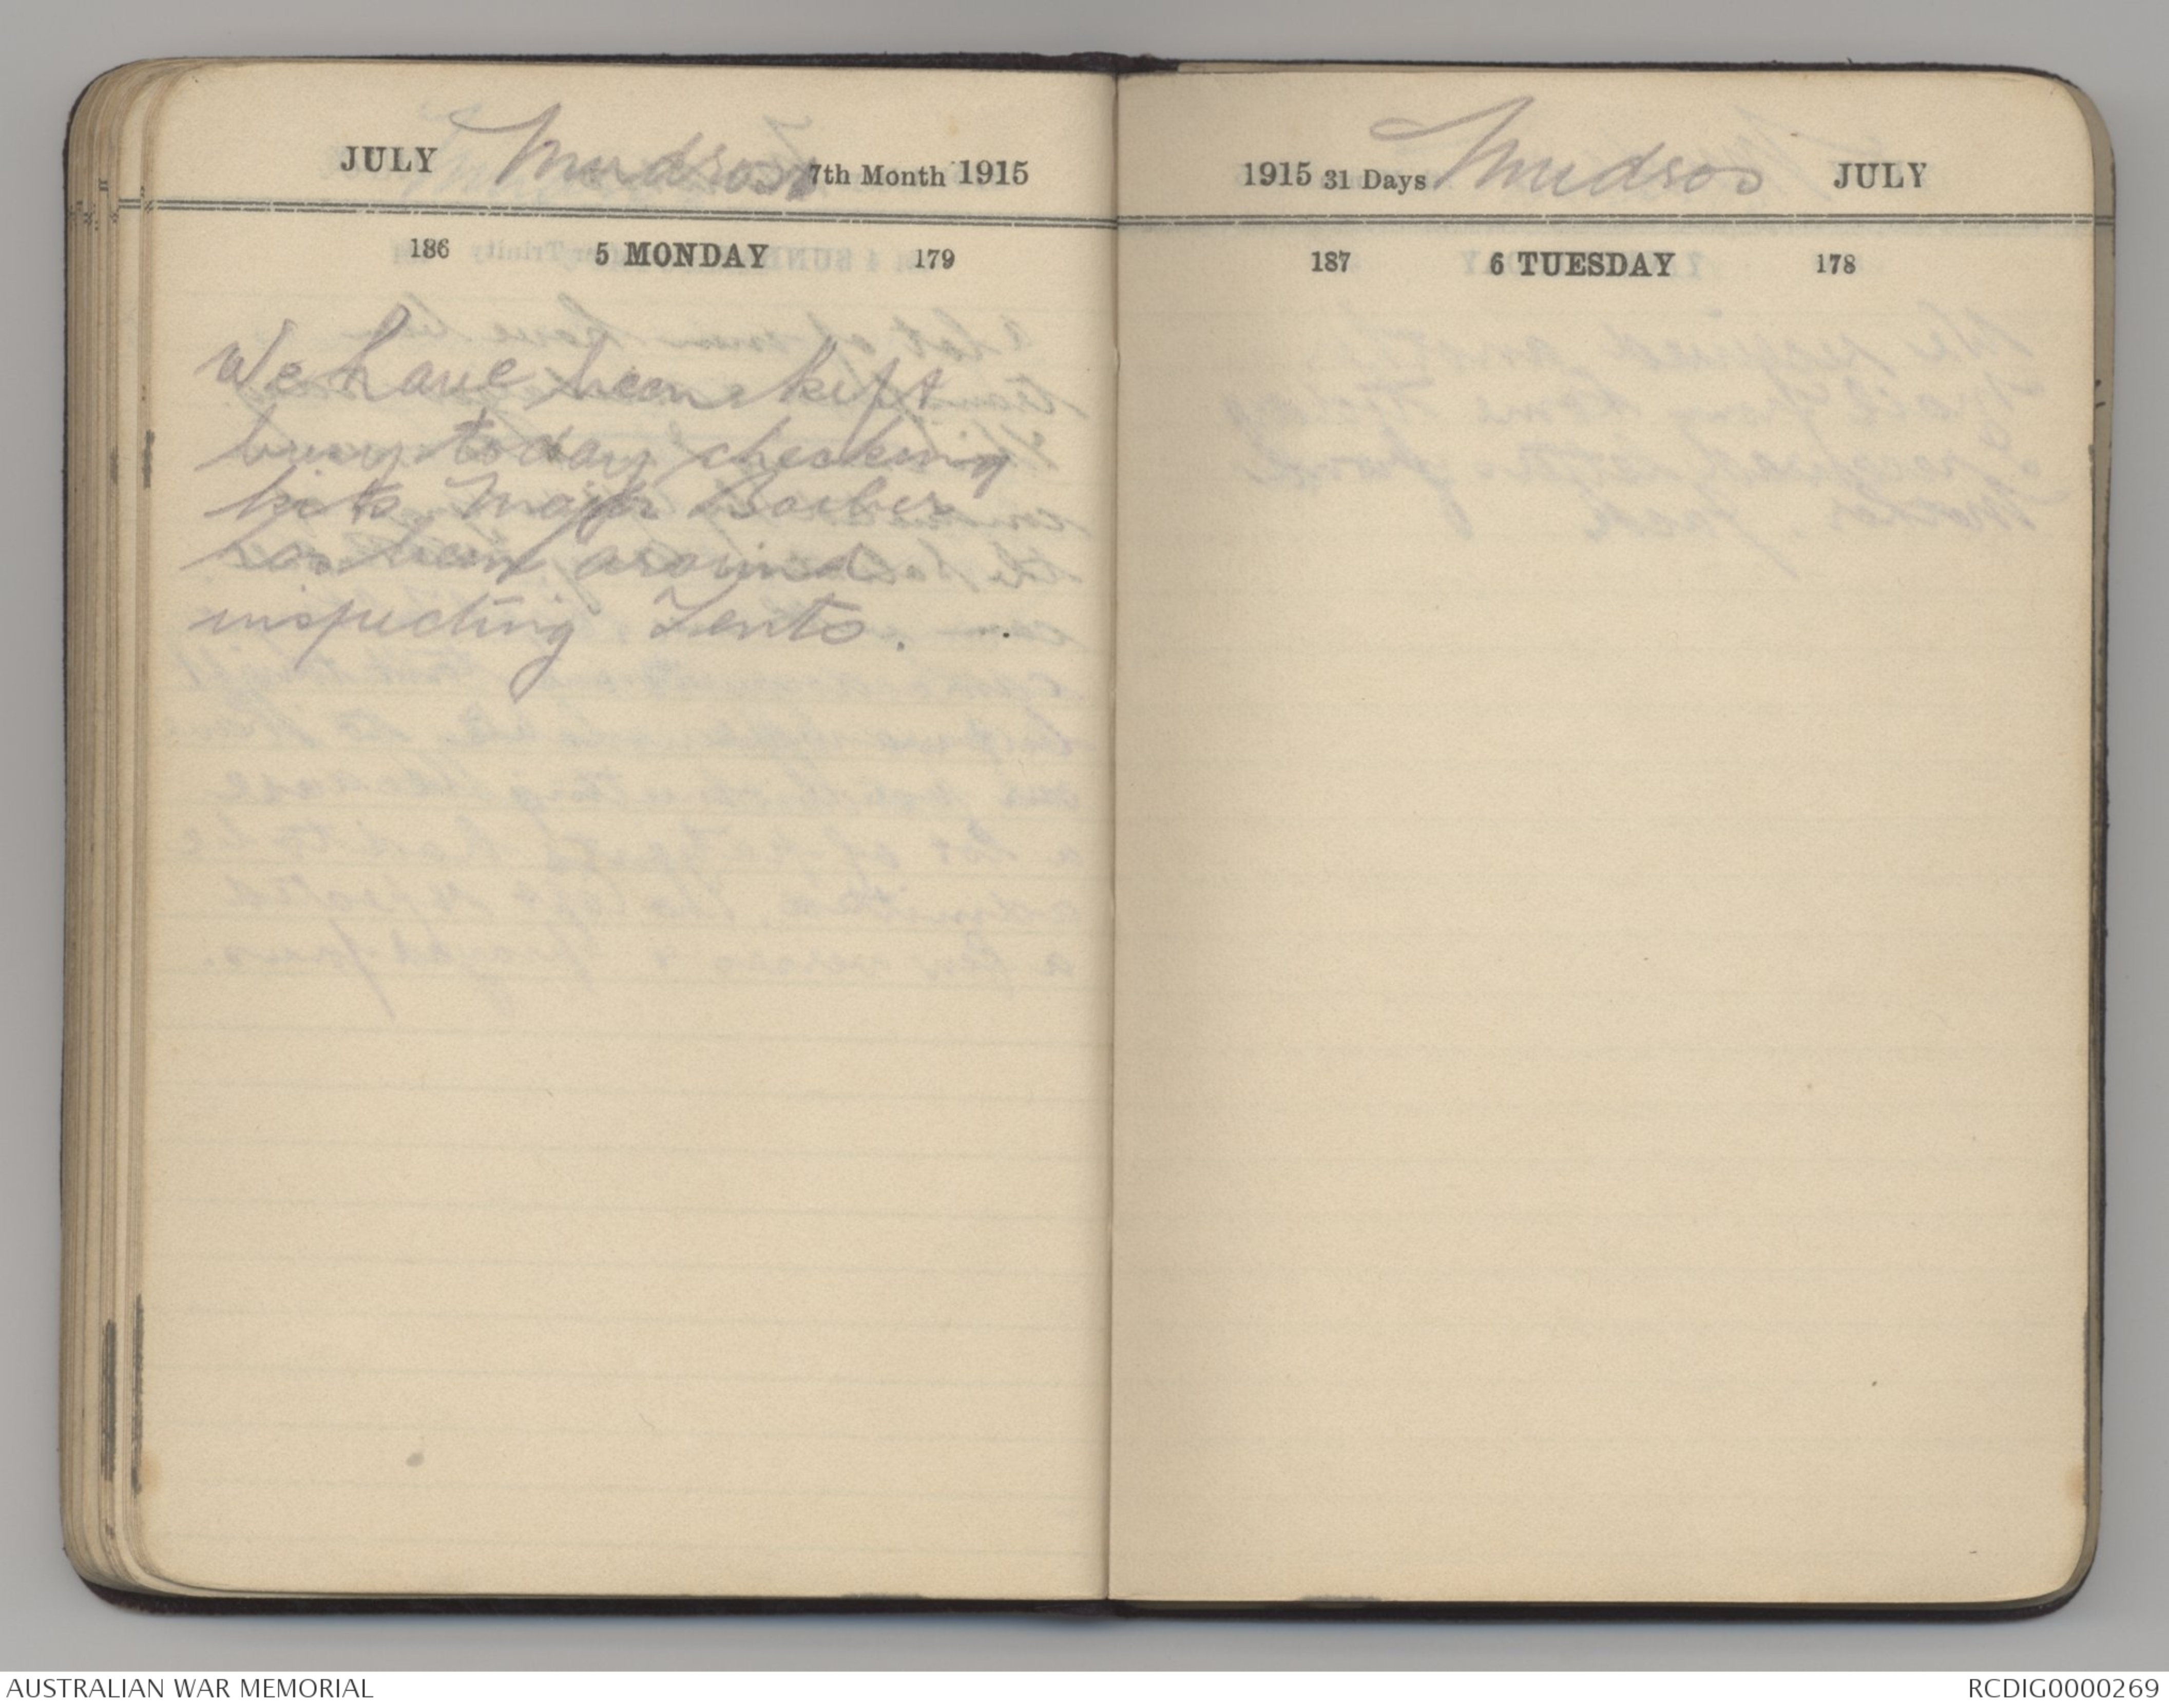 JULY Mudros 7th Month 1915
186 5 MONDAY 179
We have been kept
busy today checking
kits Major Barber
has been around
inspecting Tents.
1915 31 Days Mudros JULY
187 6 TUESDAY 178
AUSTRALIAN WAR MEMORIAL
RCDIG0000269